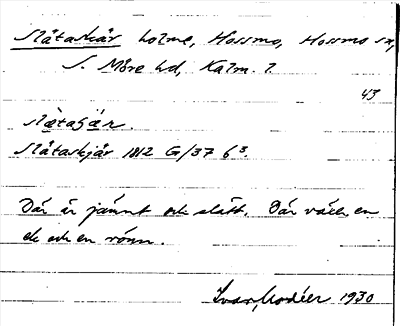 Slätaskär holme, Hossmo, Hossmo sn,
S. Möre hd, Kalm. l.
43
Slätaskjär 1812 G/37 6³.
Där är jämnt och slätt. Där växer en
ek och en rönn.
Ivar Modéer 1930